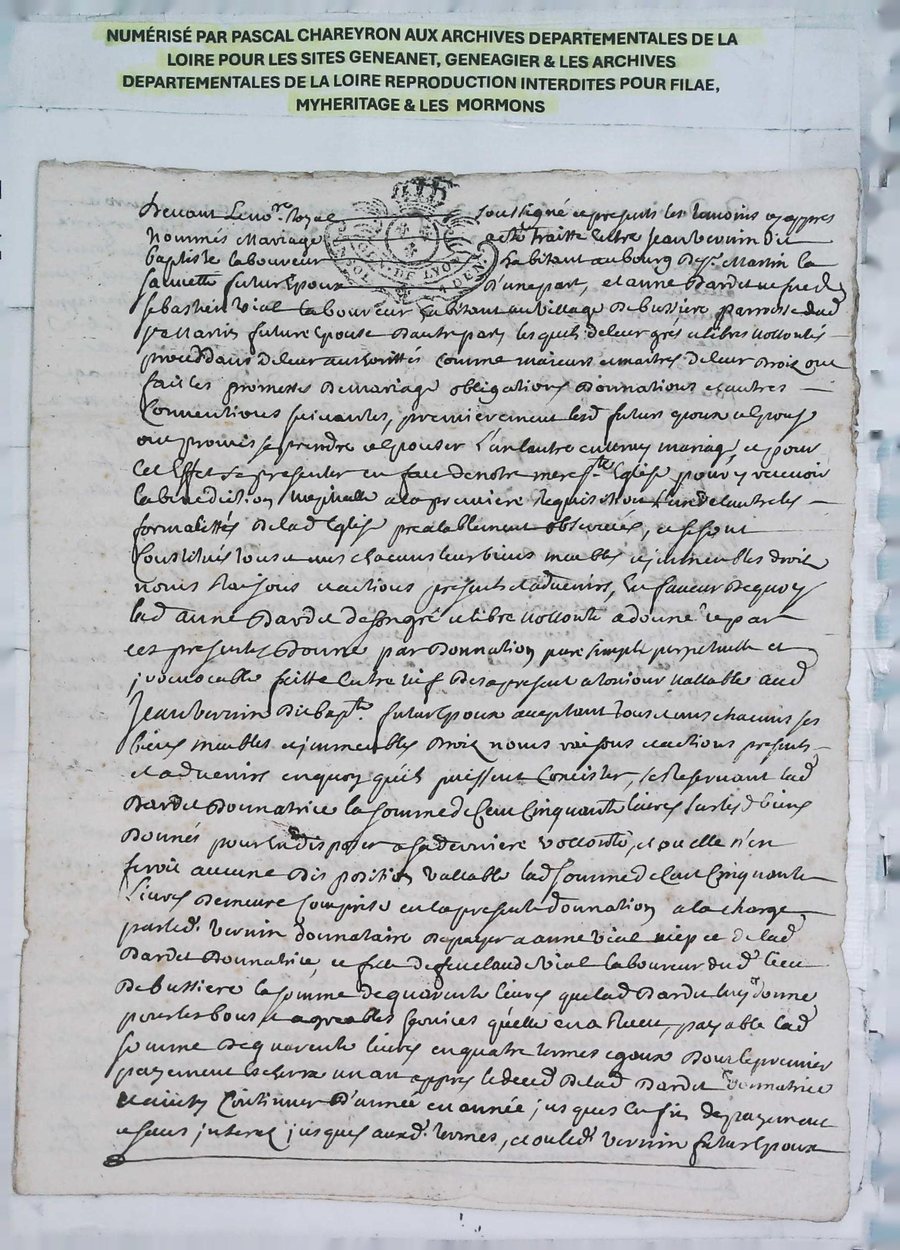 NUMÉRISÉ PAR PASCAL CHAREYRON AUX ARCHIVES DEPARTEMENTALES DE LA
LOIRE POUR LES SITES GENEANET, GENEAGIER & LES ARCHIVES
DEPARTEMENTALES DE LA LOIRE REPRODUCTION INTERDITES POUR FILAE,
MYHERITAGE & LES MORMONS
GEN. DE LYON
Devant Le no.re Royal soussigné et presents les temoins cy appres
nommés Mariage a esté traitté Entre Jean vernin dit
baptiste laboureur habitant au bourg de St. Martin la
sauvetté futur Epoux d'une part, et anne Bardet veuve de
sebastien Vial laboureur habitant au village de Bussiere parroisse dud
St Martin future Epouse d'autre part, lesquels de leur gres et libres vollontés
proceddans de leur authorittés comme majeurs et maitres de leur droit ont
fait les promesses de mariage obligations donnations et autres
Conventions suivantes, premierement lesd futurs epoux et epouse
ont promis se prendre et Epouser l'un l'autre en vray mariage, et pour
cet Effet se presenter en face de notre mere ste Eglise pour y recevoir
la benediction nuptialle a la premiere requisition l'un de l'autre les
formalittés de lad Eglise prealablement observées, et se sont
Constitués tous et uns chacuns leurs biens meubles et jmmeubles droits
noms raisons et actions presents et advenirs, En faveur de quoy
lad anne Bardet de son gré et libre vollonté a donné et par
ces presentes donne par donnation pure simple perpetuelle et
jrrevocable faitte Entre vif des a present a toujour vallable aud
Jean vernin dit bapte. futur Epoux acceptant tous et uns chacuns ses
biens meubles et jmmeubles droits noms raisons et actions presents
et advenirs en quoy qu'ils puissent Concister, se Reservant lad
Bardet Donnatrice la somme de Cent Cinquante livres sur lesd biens
Donnés pour En disposer a sa derniere vollonté, et ou elle n'en
feroit aucune disposition vallable lad somme de Cent Cinquante
livres demeure comprise en la presente donnation a la charge
par led. vernin donnataire de payer a anne vial niepce de lad
Bardet Donnatrice, et fille de feu claude Vial laboureur du d lieu
de bussiere la somme de quarente livres que lad Bardet luy donne
pour les bons et agreables services qu'elle en a Receu, payable lad
somme de quarente livres en quatre termes egaux dont le premier
payement echerra un an appres le deced de lad Bardet Donnatrice
et ainsy Continuer d'année en année jusques En fin de payement
et sans jnterets jusques auxd. termes, et ou led. vernin futur Epoux